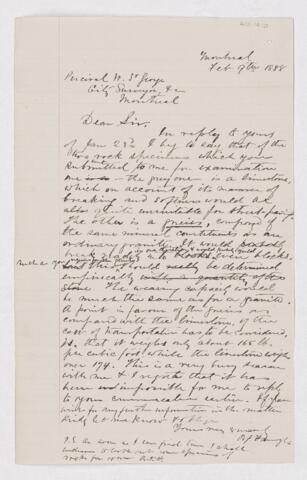 Montreal
Feb 9th 1888
Percival W. St George
City Surveyor &c
Montreal
Dear Sir.
In reply to yours
of Jan 23rd I beg to say that of the
two rock specimens which you
submitted to me for examination
one the grey one is a limestone,
which on account of its manner of
breaking and softness would be
quite unsuitable for
The other is a gneiss, composed of
the same mineral constituents as an
ordinary granite. It would
break into even blocks,
but this could be determined
stone. The wearing capacity would
be much the same as for a granite.
A point in favour of the gneiss as
compared with the limestone, if the
cost of transportation has to be considered,
is, that it weighs only about 165 lb.
per cubic foot while the limestone weighs
over 174. This is a very busy season
with me & I regret that it has
been impossible for me to reply
to your communication earlier. If you
wish for any further information in the matter
kindly let me know &
Yours very
P.S. As soon as I can find time I shall